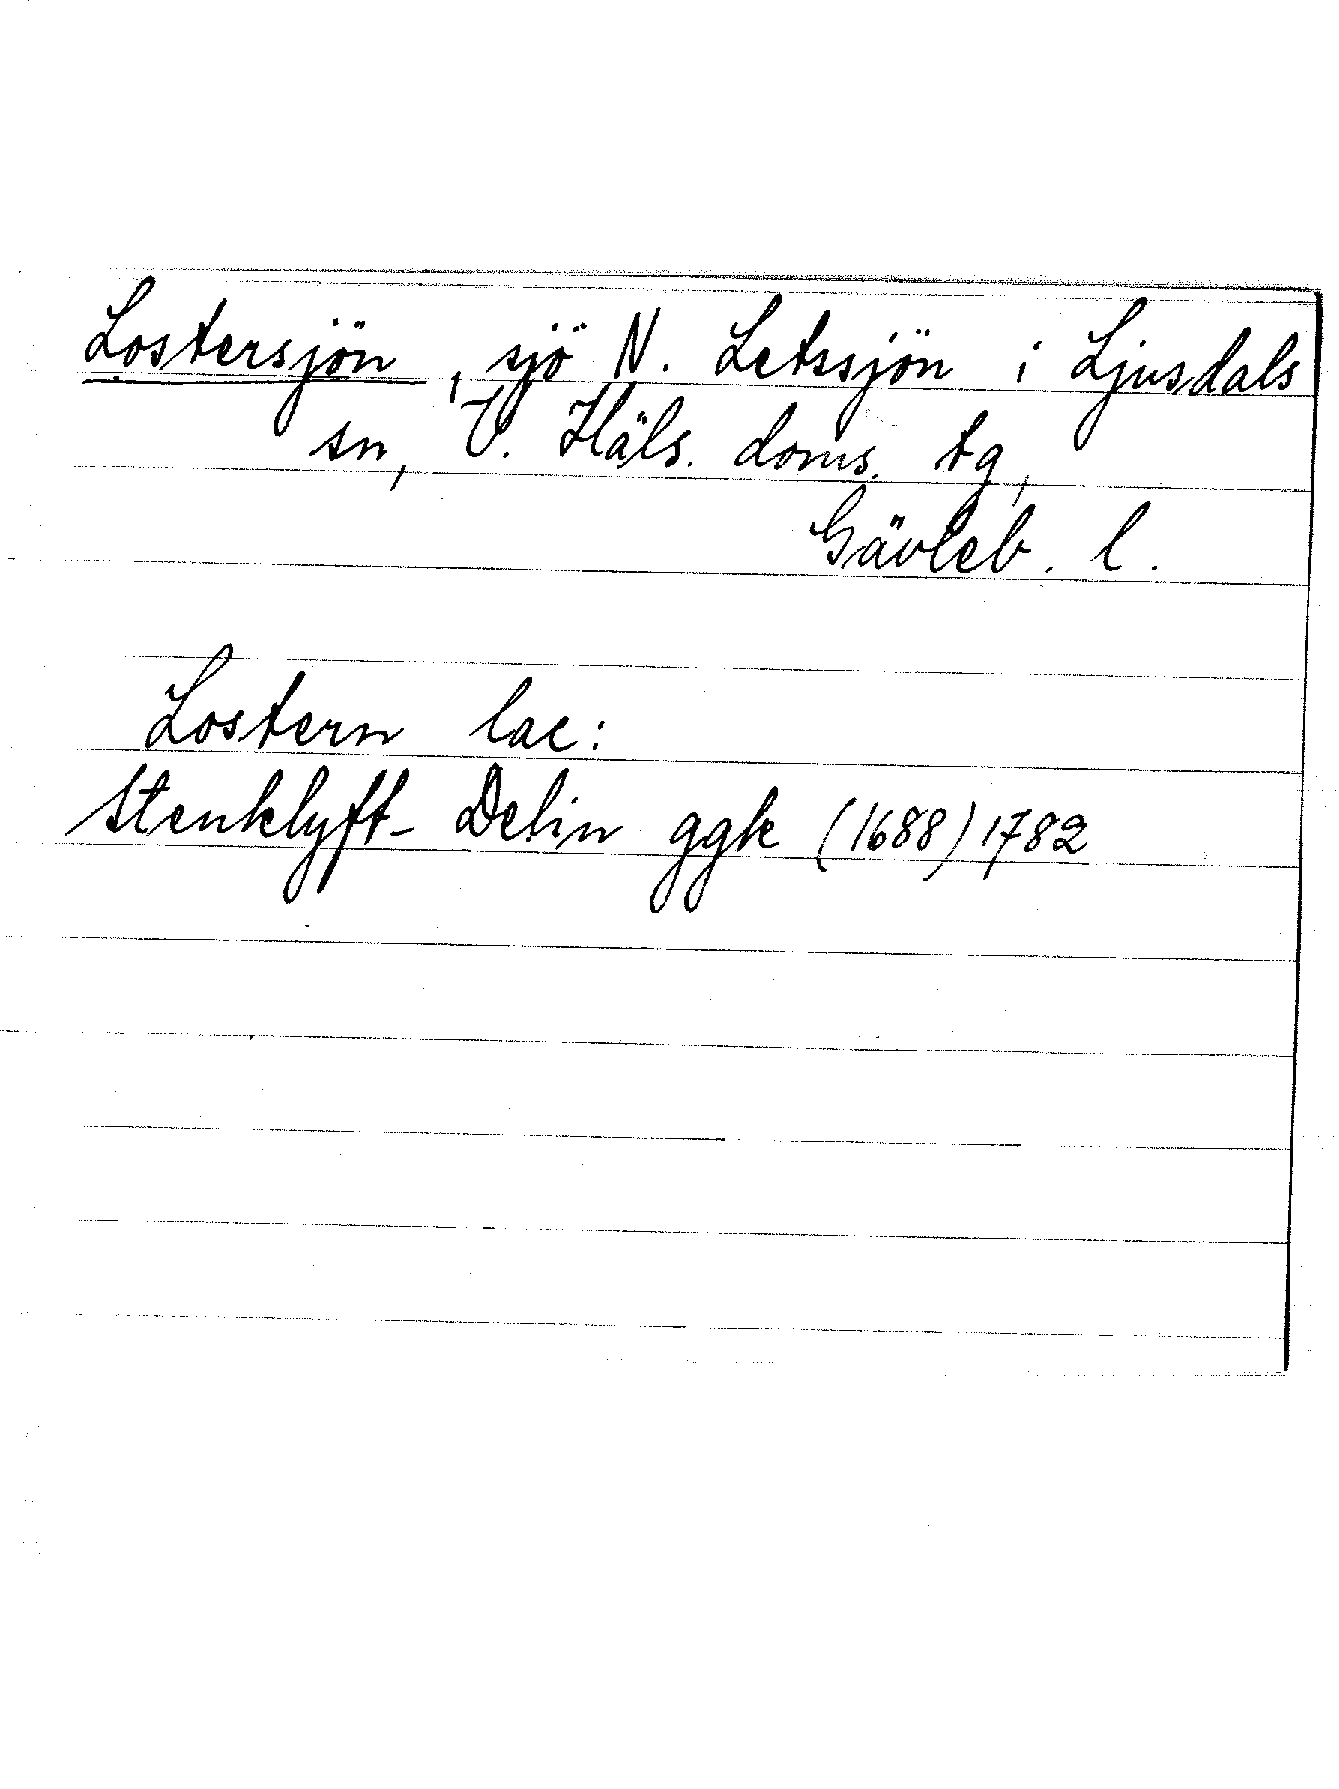 Lostersjön, sjö N. Letssjön i Ljusdals
sn, V. Häls. doms. tg,
Gävleb. l.
Lostern lac:
Stenklyft- Delin ggk (1688) 1782